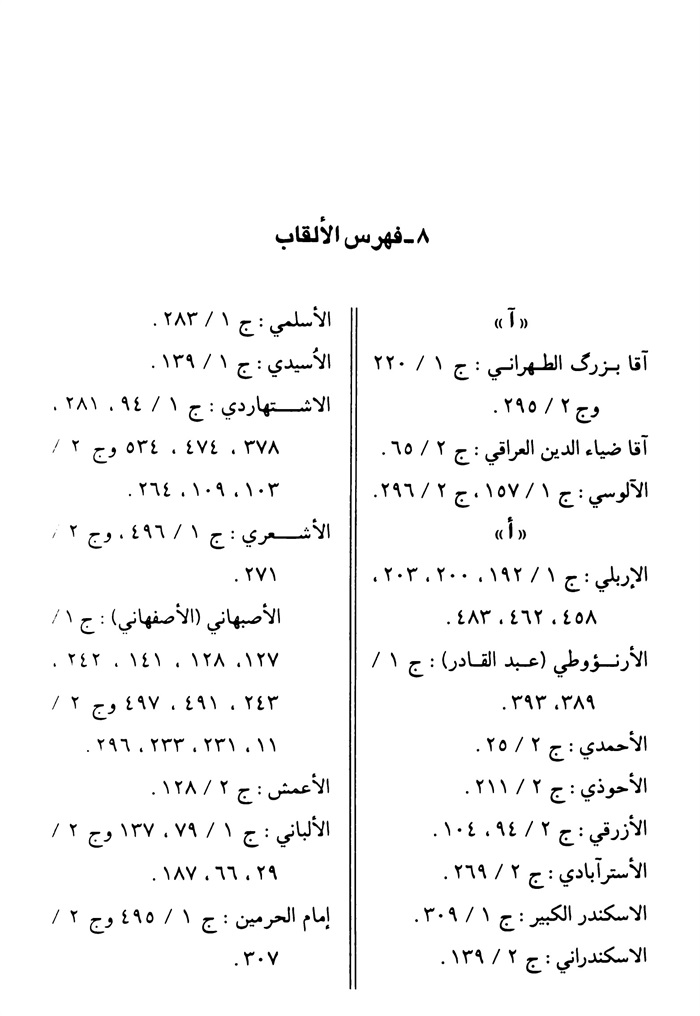 ٨ ـ فهرس الألقاب
« آ »
آقا بـزرگ الطـهرانـي : ج ١ / ٢٢٠
وج ٢ / ٢٩٥ .
آقا ضياء الدين العراقي : ج ٢ / ٦٥ .
الآلوسي : ج ١ / ١٥٧ ، ج ٢ / ٢٩٦ .
« أ »
الإربلي : ج ١ / ١٩٢ ، ٢٠٠ ، ٢٠٣ ،
٤٥٨ ، ٤٦٢ ، ٤٨٣ .
الأرنـؤوطي (عـبد القـادر) : ج ١ /
٣٨٩ ، ٣٩٣ .
الأحمدي : ج ٢ / ٢٥ .
الأحوذي : ج ٢ / ٢١١ .
الأزرقي : ج ٢ / ٩٤ ، ١٠٤ .
الأسترآبادي : ج ٢ / ٢٦٩ .
الاسكندر الكبير : ج ١ / ٣٠٩ .
الاسكندراني : ج ٢ / ١٣٩ .
الأسلمي : ج ١ / ٢٨٣ .
الأُسيدي : ج ١ / ١٣٩ .
الاشـــتهاردي : ج ١ / ٩٤ ، ٢٨١ ،
٣٧٨ ، ٤٧٤ ، ٥٣٤ وج ٢ /
١٠٣ ، ١٠٩ ، ٢٦٤ .
الأشـــعري : ج ١ / ٤٩٦ ، وج ٢ /
٢٧١ .
الأصبهاني (الأصفهاني) : ج ١ /
١٢٧ ، ١٢٨ ، ١٤١ ، ٢٤٢ ،
٢٤٣ ، ٤٩١ ، ٤٩٧ وج ٢ /
١١ ، ٢٣١ ، ٢٣٣ ، ٢٩٦ .
الأعمش : ج ٢ / ١٢٨ .
الألباني : ج ١ / ٧٩ ، ١٣٧ وج ٢ /
٢٩ ، ٦٦ ، ١٨٧ .
إمام الحرمين : ج ١ / ٤٩٥ وج ٢ /
٣٠٧ .